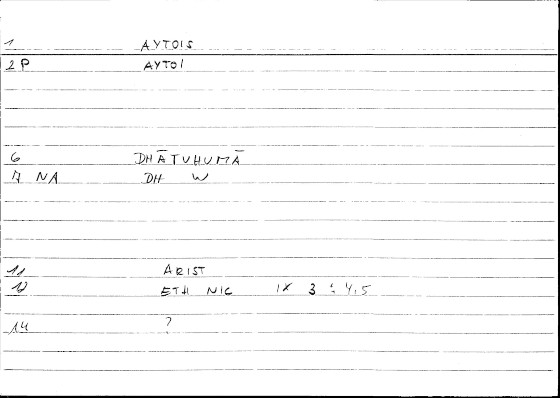 1 AYTOIS
2 P AYTOI
6 DHĀTUHUMĀ
7 NA DH W
11 ARIST
12 ETH NIC IX 3 : 4,5
14 ?